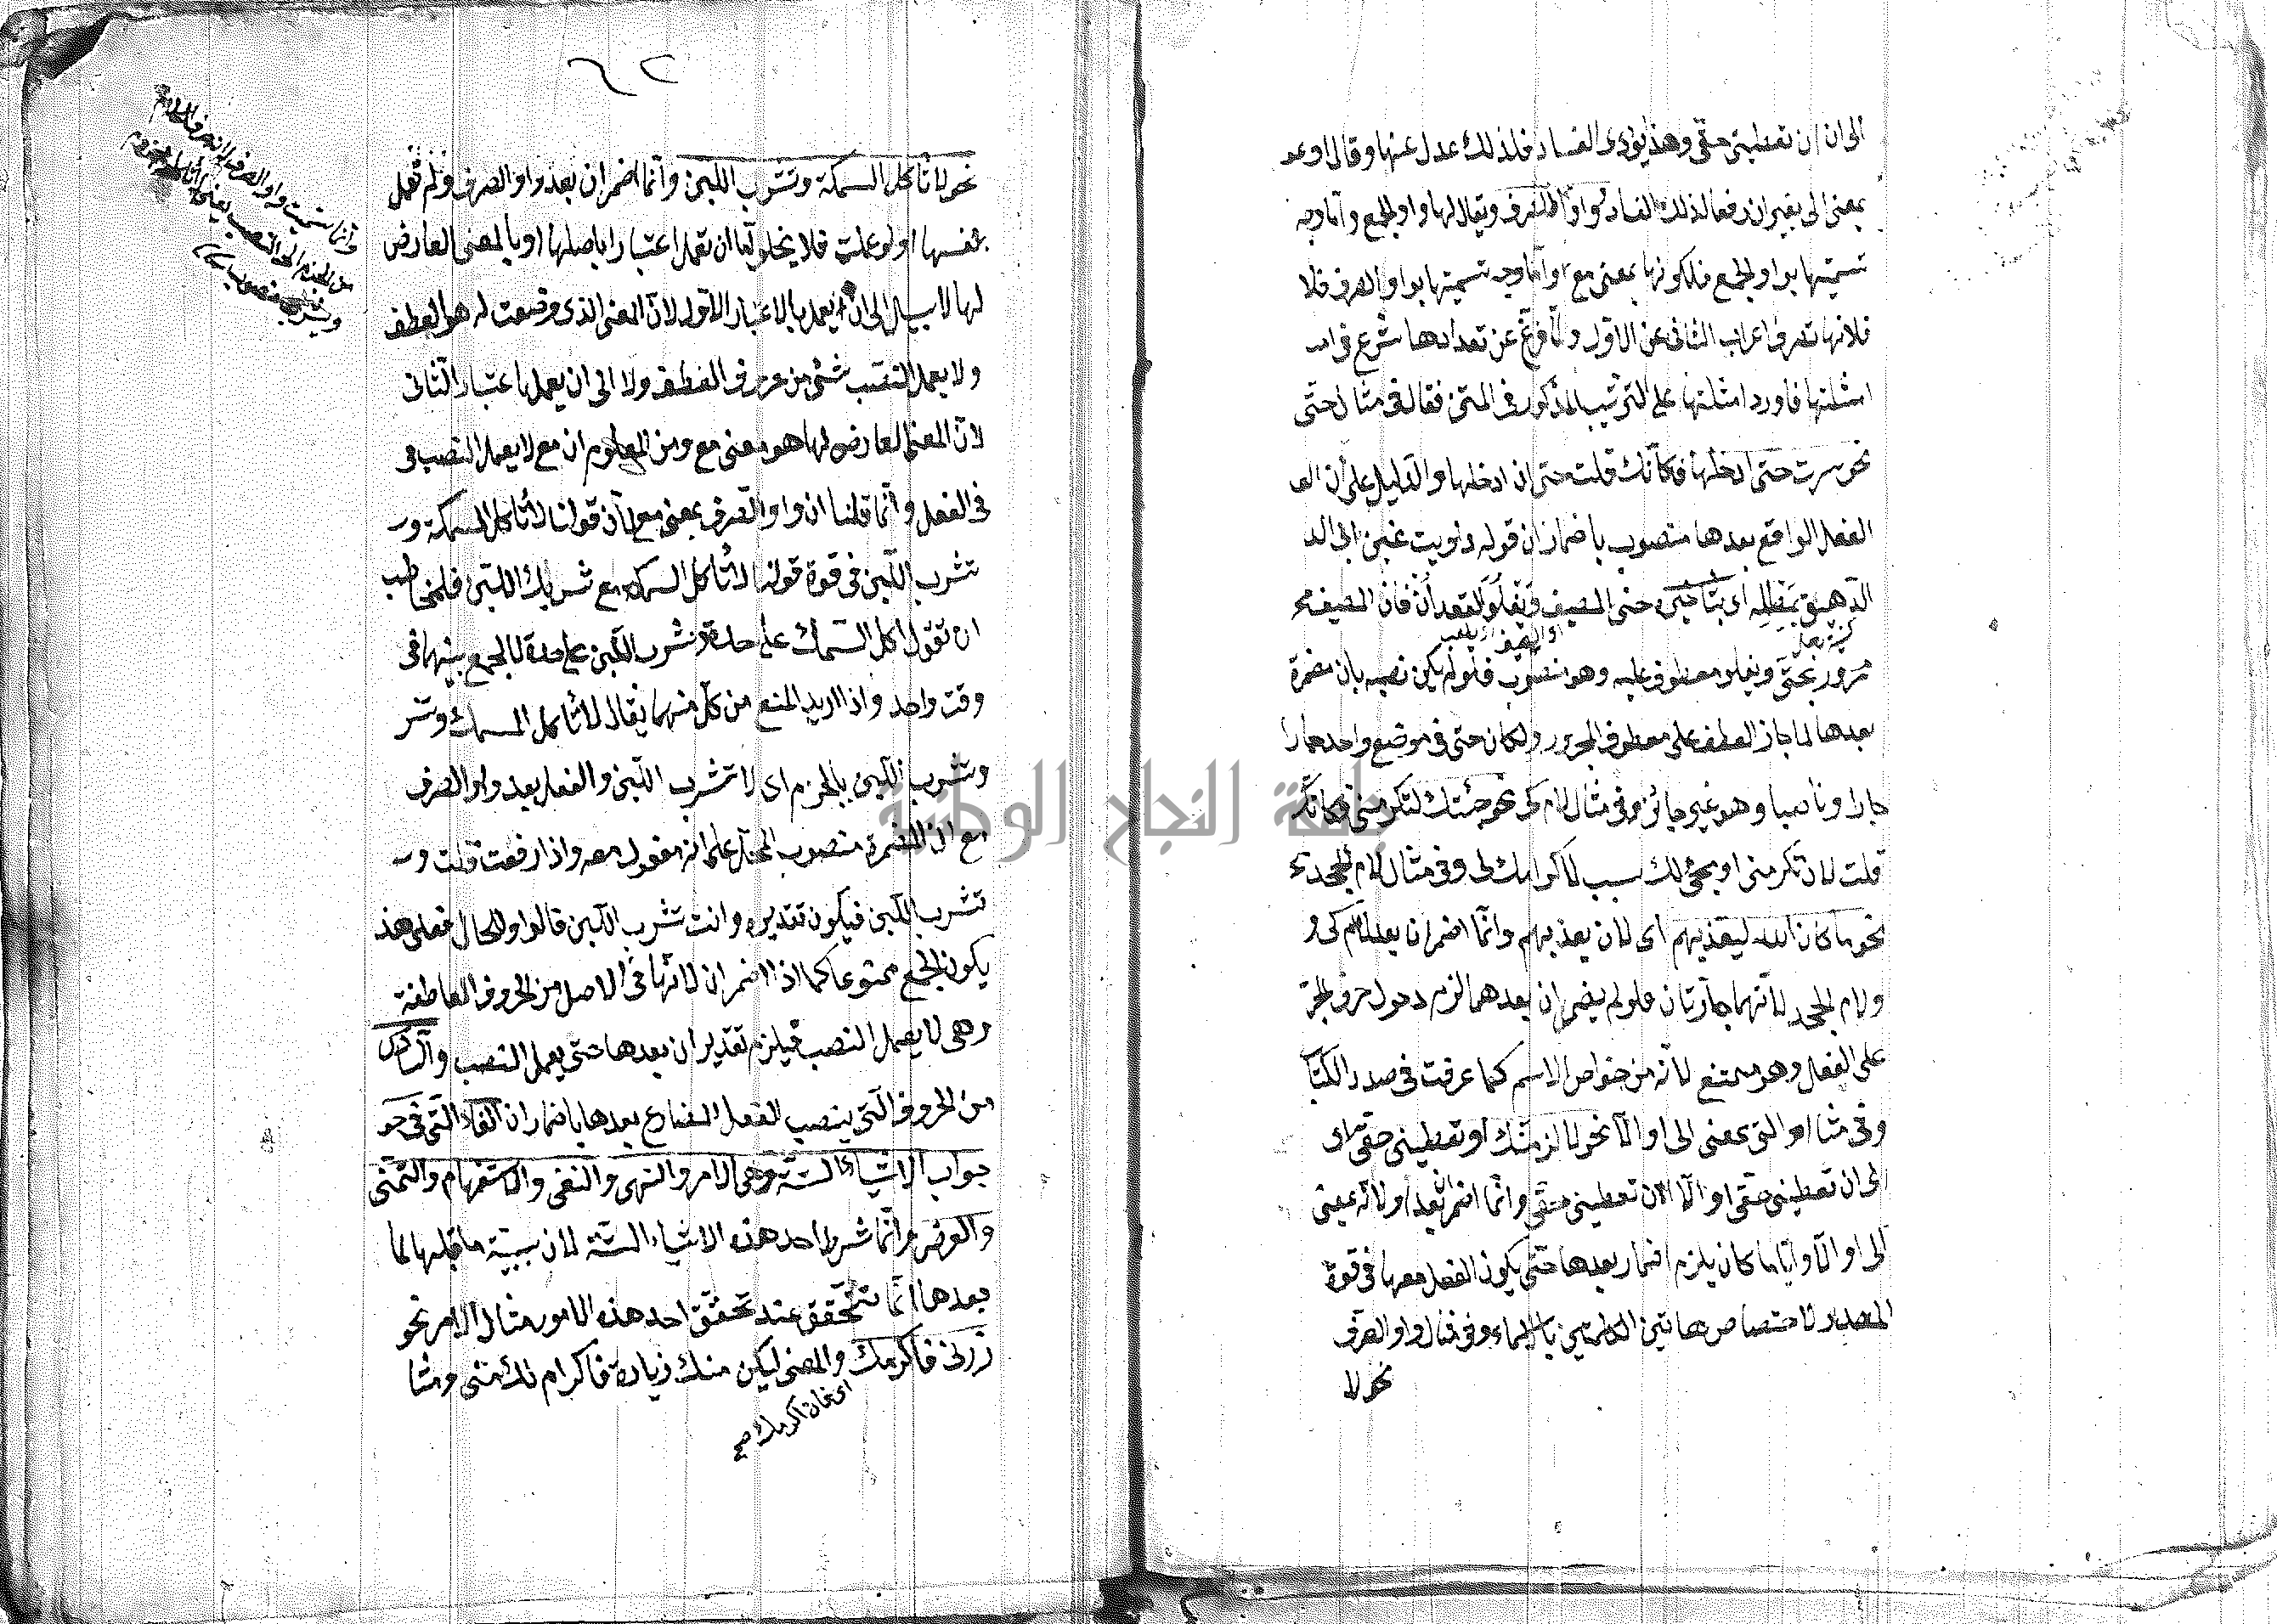 الى ان ان تعطينى حقى وهذا يؤدى الفساد فلذلك عدل عنها وقال او عد
بمعنى الى بغير ان دفعا لذلك الفساد وواو الصرف ويقال لها واو الجمع وأما وجه
تسميتها بواو الجمع فلكونها بمعنى مع وأما وجه تسميتها بواو الصرف فلا
فلانها تصرف اعراب الثانى عن الاول ولما فرغ عن تعدادها شرع فى امـ
امثلتها فاورد امثلتها على الترتيب المذكور فى المتن فقال فى مثال حتى
نحو سرت حتى ادخلها فكأنك قلت حتى ان ادخلها والدليل على أن الفـ
الفعل الواقع بعدها منصوب باضمار ان قوله
حتى المصيف ويغلو القعدان فان المصيف مجـ
مرور بحتى ويغلو معطوف عليه وهو منصوب فلو لم يكن نصبه بان مضمرة
بعدها لما جاز العطف على معطوف المجرور ولكان حتى فى موضع واحد جارا
جارا وناصبا وهو غير جائز وفى مثال لام كى نحو جئتك لتكرمنى فكانك
قلت لان تكرمنى او مجئى لك سبب لاكرامك لى وفى مثال لام الجحد
نحو ما كان الله ليعذبهم اى لان يعذبهم وانما اضمر ان بعد لام كى و
ولام الجحد لانهما جارتان فلو لم يضمر ان بعدهما لزم دخول حرف الجر
على الفعل وهو ممتنع لانه من خواص الاسم كما عرفت فى صدر الكتا
وفى مثال او التى بمعنى الى او الا نحو لالزمنك او تعطينى حقى اى
الى ان تعطينى حقى او الا ان تعطينى حقى وانما اضمر بعد او لانه بمعنى
الى او الا وايا ما كان يلزم اضمار بعدها حتى يكون الفعل معها فى قوة
المصدر لاختصاص هاتين الكلمتين بالاسماء وفى مثال واو الصرف
نحو لا
٦٢
نحو لا تأكل السمكة وتشرب اللبن وانما اضمر ان بعد واو الصرف ولم تعمل
بنفسها اولو عملت فلا يخلو اما ان تعمل اعتبارا باصلها او بالمعنى العارض
لها لا سبيل الى ان يعمل بالاعتبار الاول لان المعنى الذى وضعت له هو العطف
ولا يعمل النصب شئ من حروف العطف ولا الى ان يعمل باعتبار الثانى
لان المعنى العارض لها هو معنى مع ومن المعلوم ان مع لا يعمل النصب فى
فى الفعل وانما قلنا ان واو الصرف بمعنى مع لان قولنا لا تأكل السمكة و
تشرب اللبن فى قوة قولنا لا تأكل السمكة مع شربك اللبن فلمخاطب
ان تقول اكل السمك على حدة وتشرب اللبن على حدة لا الجمع بينهما فى
وقت واحد واذا اريد المنع من كل منهما يقال لا تأكل السمك وتشر
وتشرب اللبن بالجزم اى لا تشرب اللبن والفعل بعد واو الصرف
مع ان المضمرة منصوب المحل على انه مفعول معه واذا رفعت قلت و
تشرب اللبن فيكون تقديره وانت تشرب اللبن قالواو للحال فعلى هذ
يكون الجمع ممنوعا كما اذا اضمر ان لانها فى الاصل من الحروف العاطفة
وهى لا يعمل النصب فيلزم تقدير ان بعدها حتى يعمل النصب والسادس
من الحروف التى ينصب الفعل المضارع بعدها باضمار ان الفاء التى فى جو
جواب الاشياء الستة وهى الامر والنهى والنفى والاستفهام والتمنى
والعرض وانما شرط احد هذه الاشياء الستة لان سببية ما قبلها لما
بعدها انما تتحقق عند تحقق احد هذه الامور مثال الامر نحو
زرنى فاكرمك والمعنى ليكن منك زيارة فاكرام لك منى ومثا
اى فان اكرمك صح
وانما سميت واو الصرف لانه صرف
من الجزم الى النصب
وتشرب منصوب
جامعة النجاح الوطنية